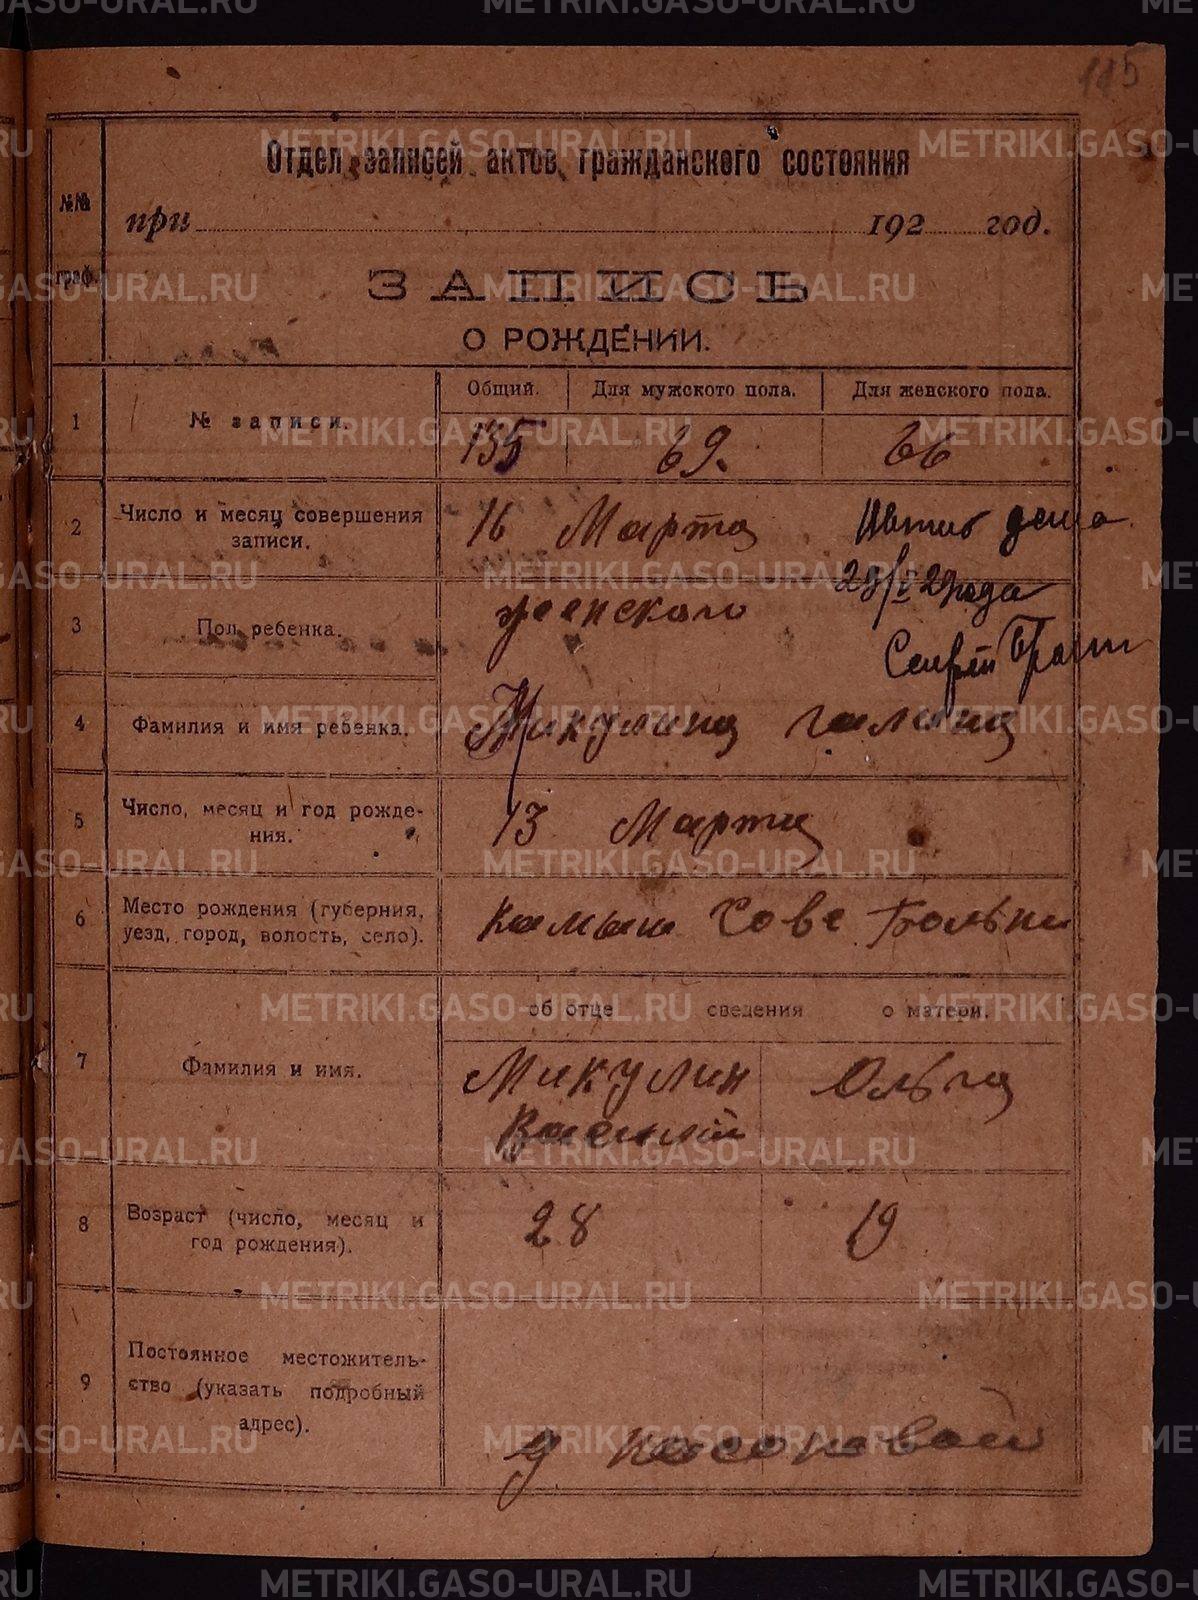 115
Отдел записей актов гражданского состояния
№№ граф.
при 192 год.
ЗАПИСЬ
О РОЖДЕНИИ.
Общий. Для мужского пола. Для женского пола.
1 № записи. 135 69. 66
2 Число и месяц совершения записи. 16 Марта
3 Пол ребенка. женского
4 Фамилия и имя ребенка. Микулина Галина
5 Число, месяц и год рождения. 13 Марта
6 Место рождения (губерния, уезд, город, волость, село). Камыш Сове Больни
об отце сведения о матери.
7 Фамилия и имя. Микулин Ольга
Василий
8 Возраст (число, месяц и год рождения). 28 19
9 Постоянное местожительство (указать подробный адрес).
METRIKI.GASO-URAL.RU